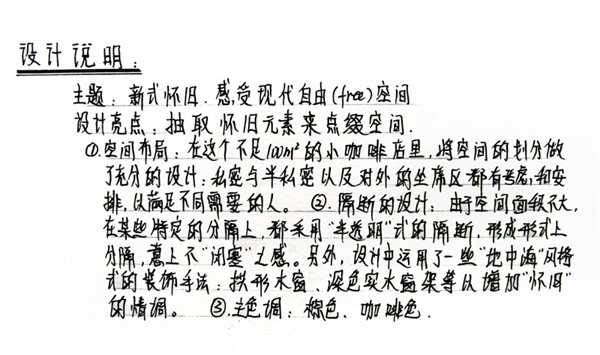 设计说明:
主题:新式怀旧.感受现代自由(free)空间
设计亮点:抽取怀旧元素来点缀空间.
①.空间布局:在这个不足100m²的小咖啡店里,将空间的划分做
了充分的设计:私密与半私密以及对外的坐席区都有考虑和安
排,以满足不同需要的人。 ②.隔断的设计:由于空间面积不大,
在某些特定的分隔上,都采用"半透明"式的隔断,形成形式上
分隔,意上不"闭塞"之感。另外,设计中运用了一些"地中海"风格
式的装饰手法:拱形木窗、深色实木窗架等以增加"怀旧"
的情调。 ③.主色调:棕色、咖啡色.